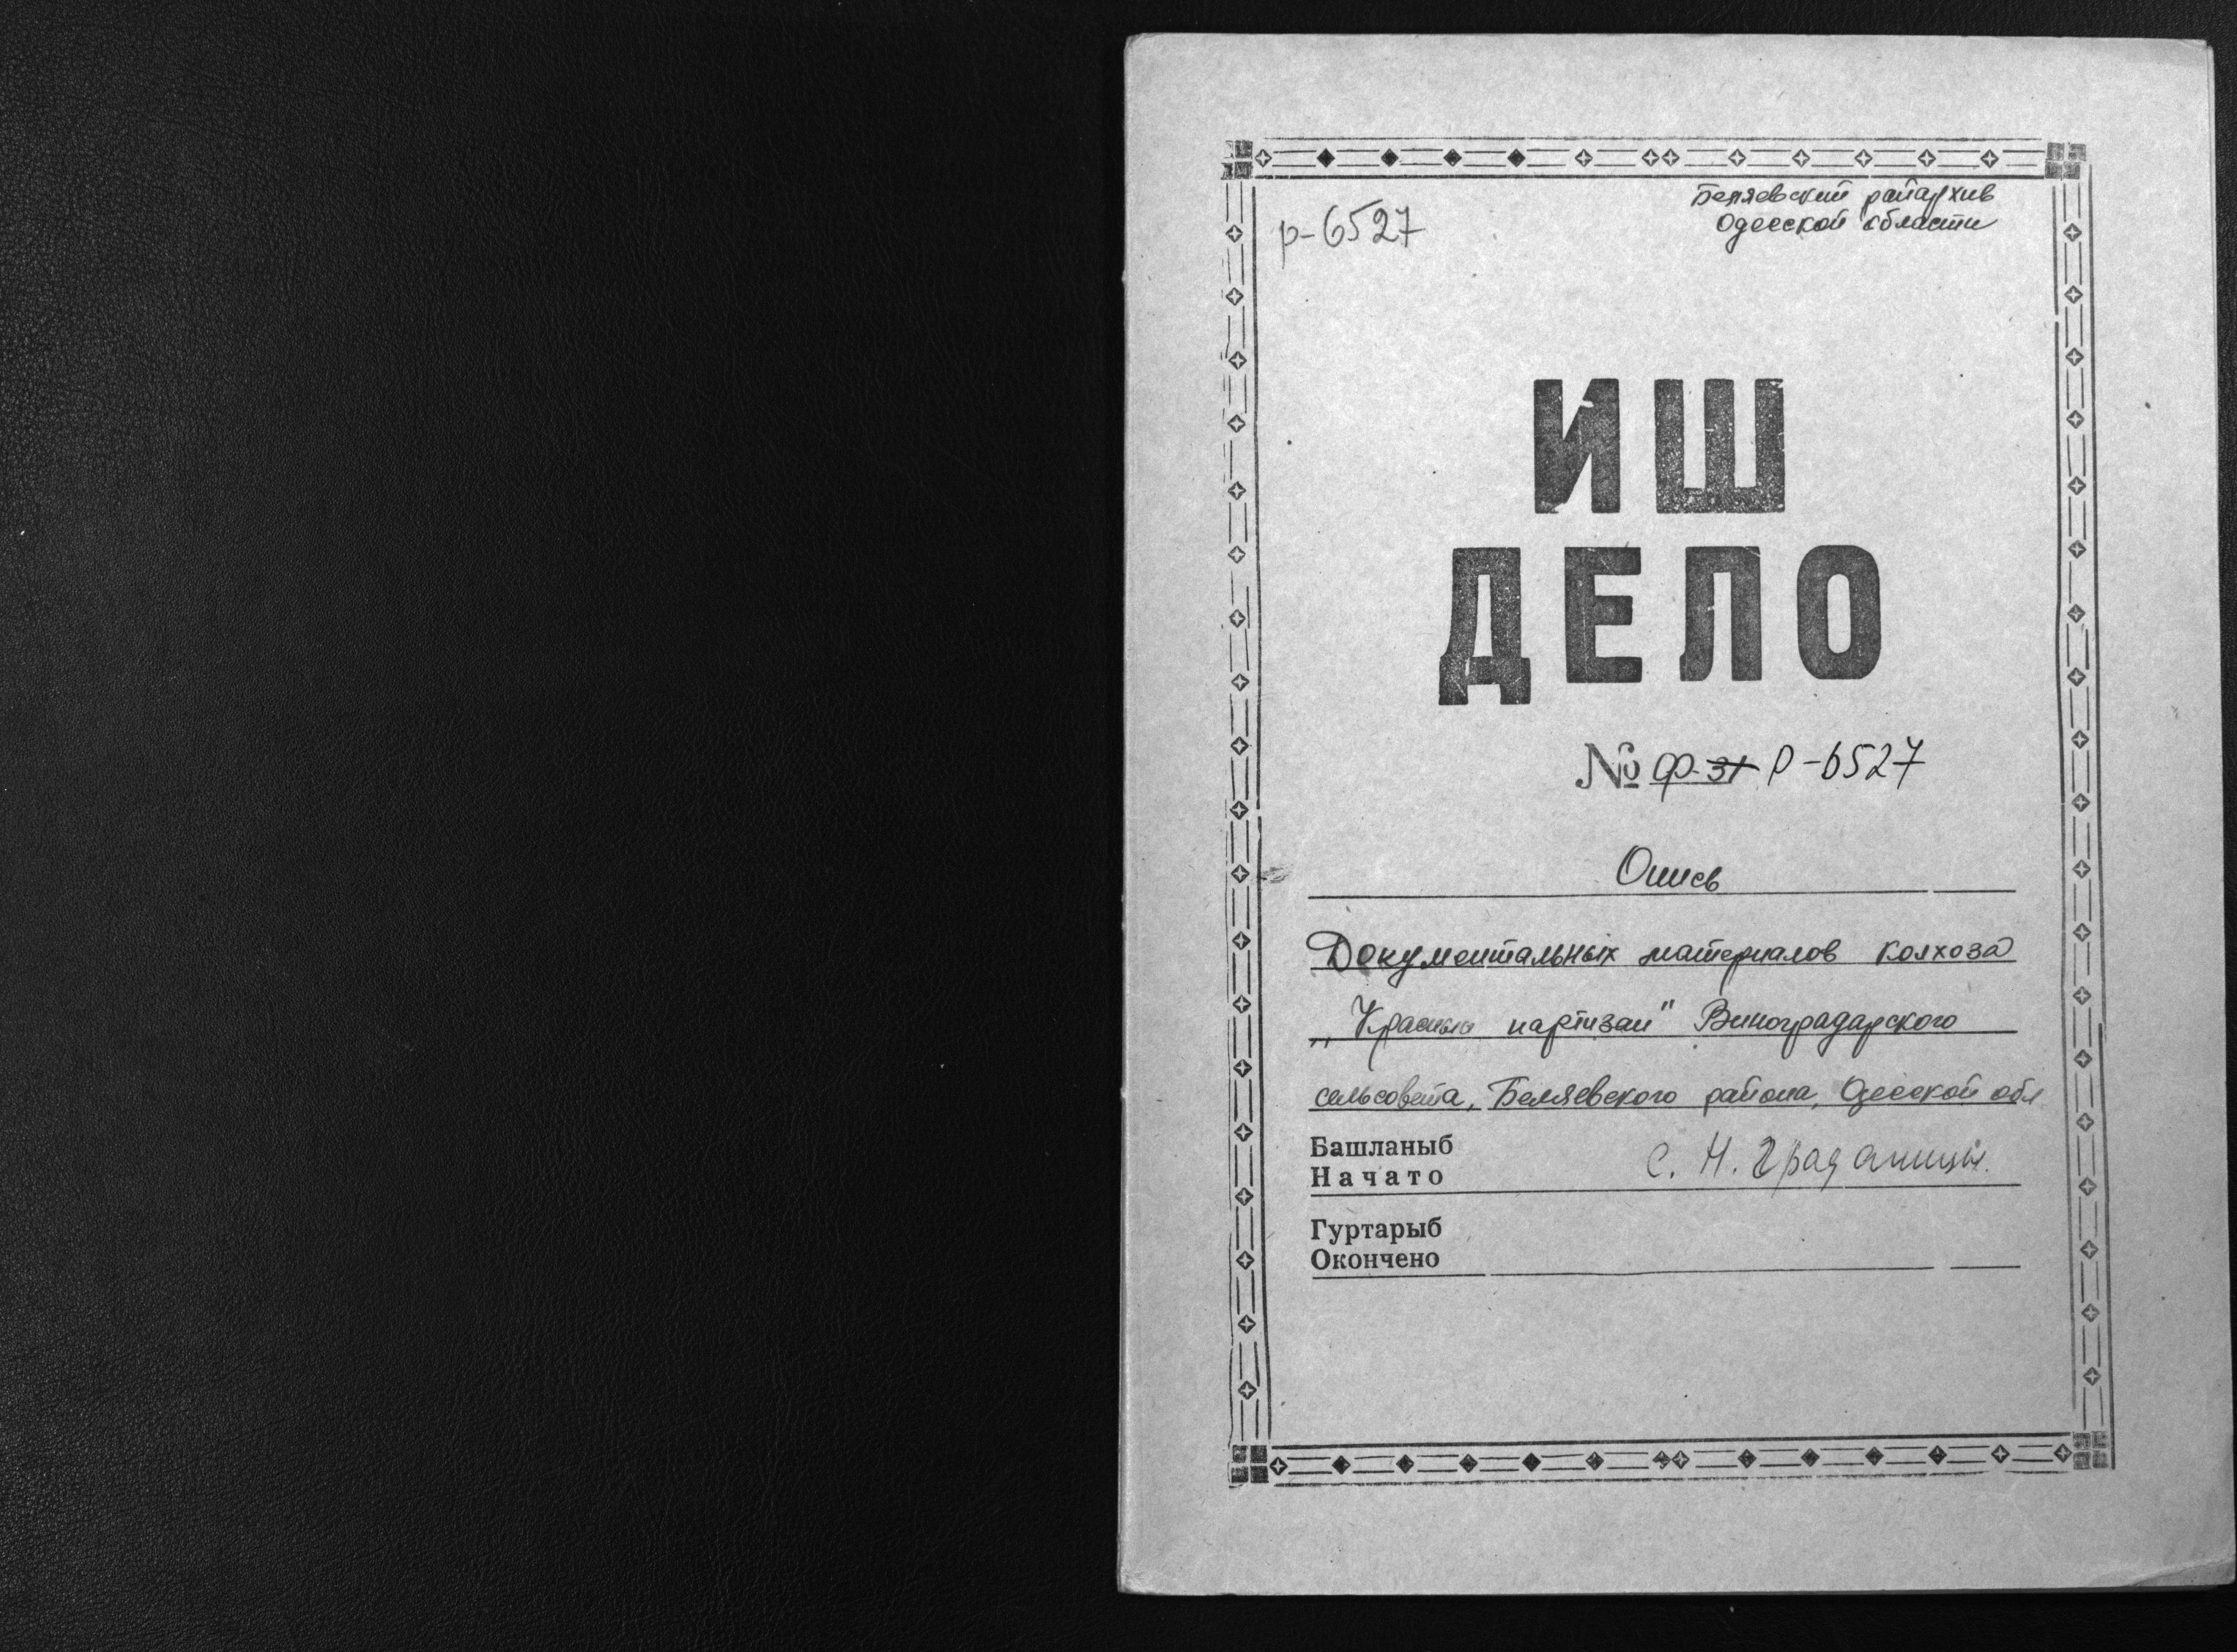 р-6527
Беляевский райархив
Одесской области
ИШ
ДЕЛО
№ Ф-31 Р-6527
Опись
Документальных материалов колхоза
„Красный партизан" Виноградарского
сельсовета, Беляевского района, Одесской обл
Башланыб
Начато
с. Н. Градиницы.
Гуртарыб
Окончено